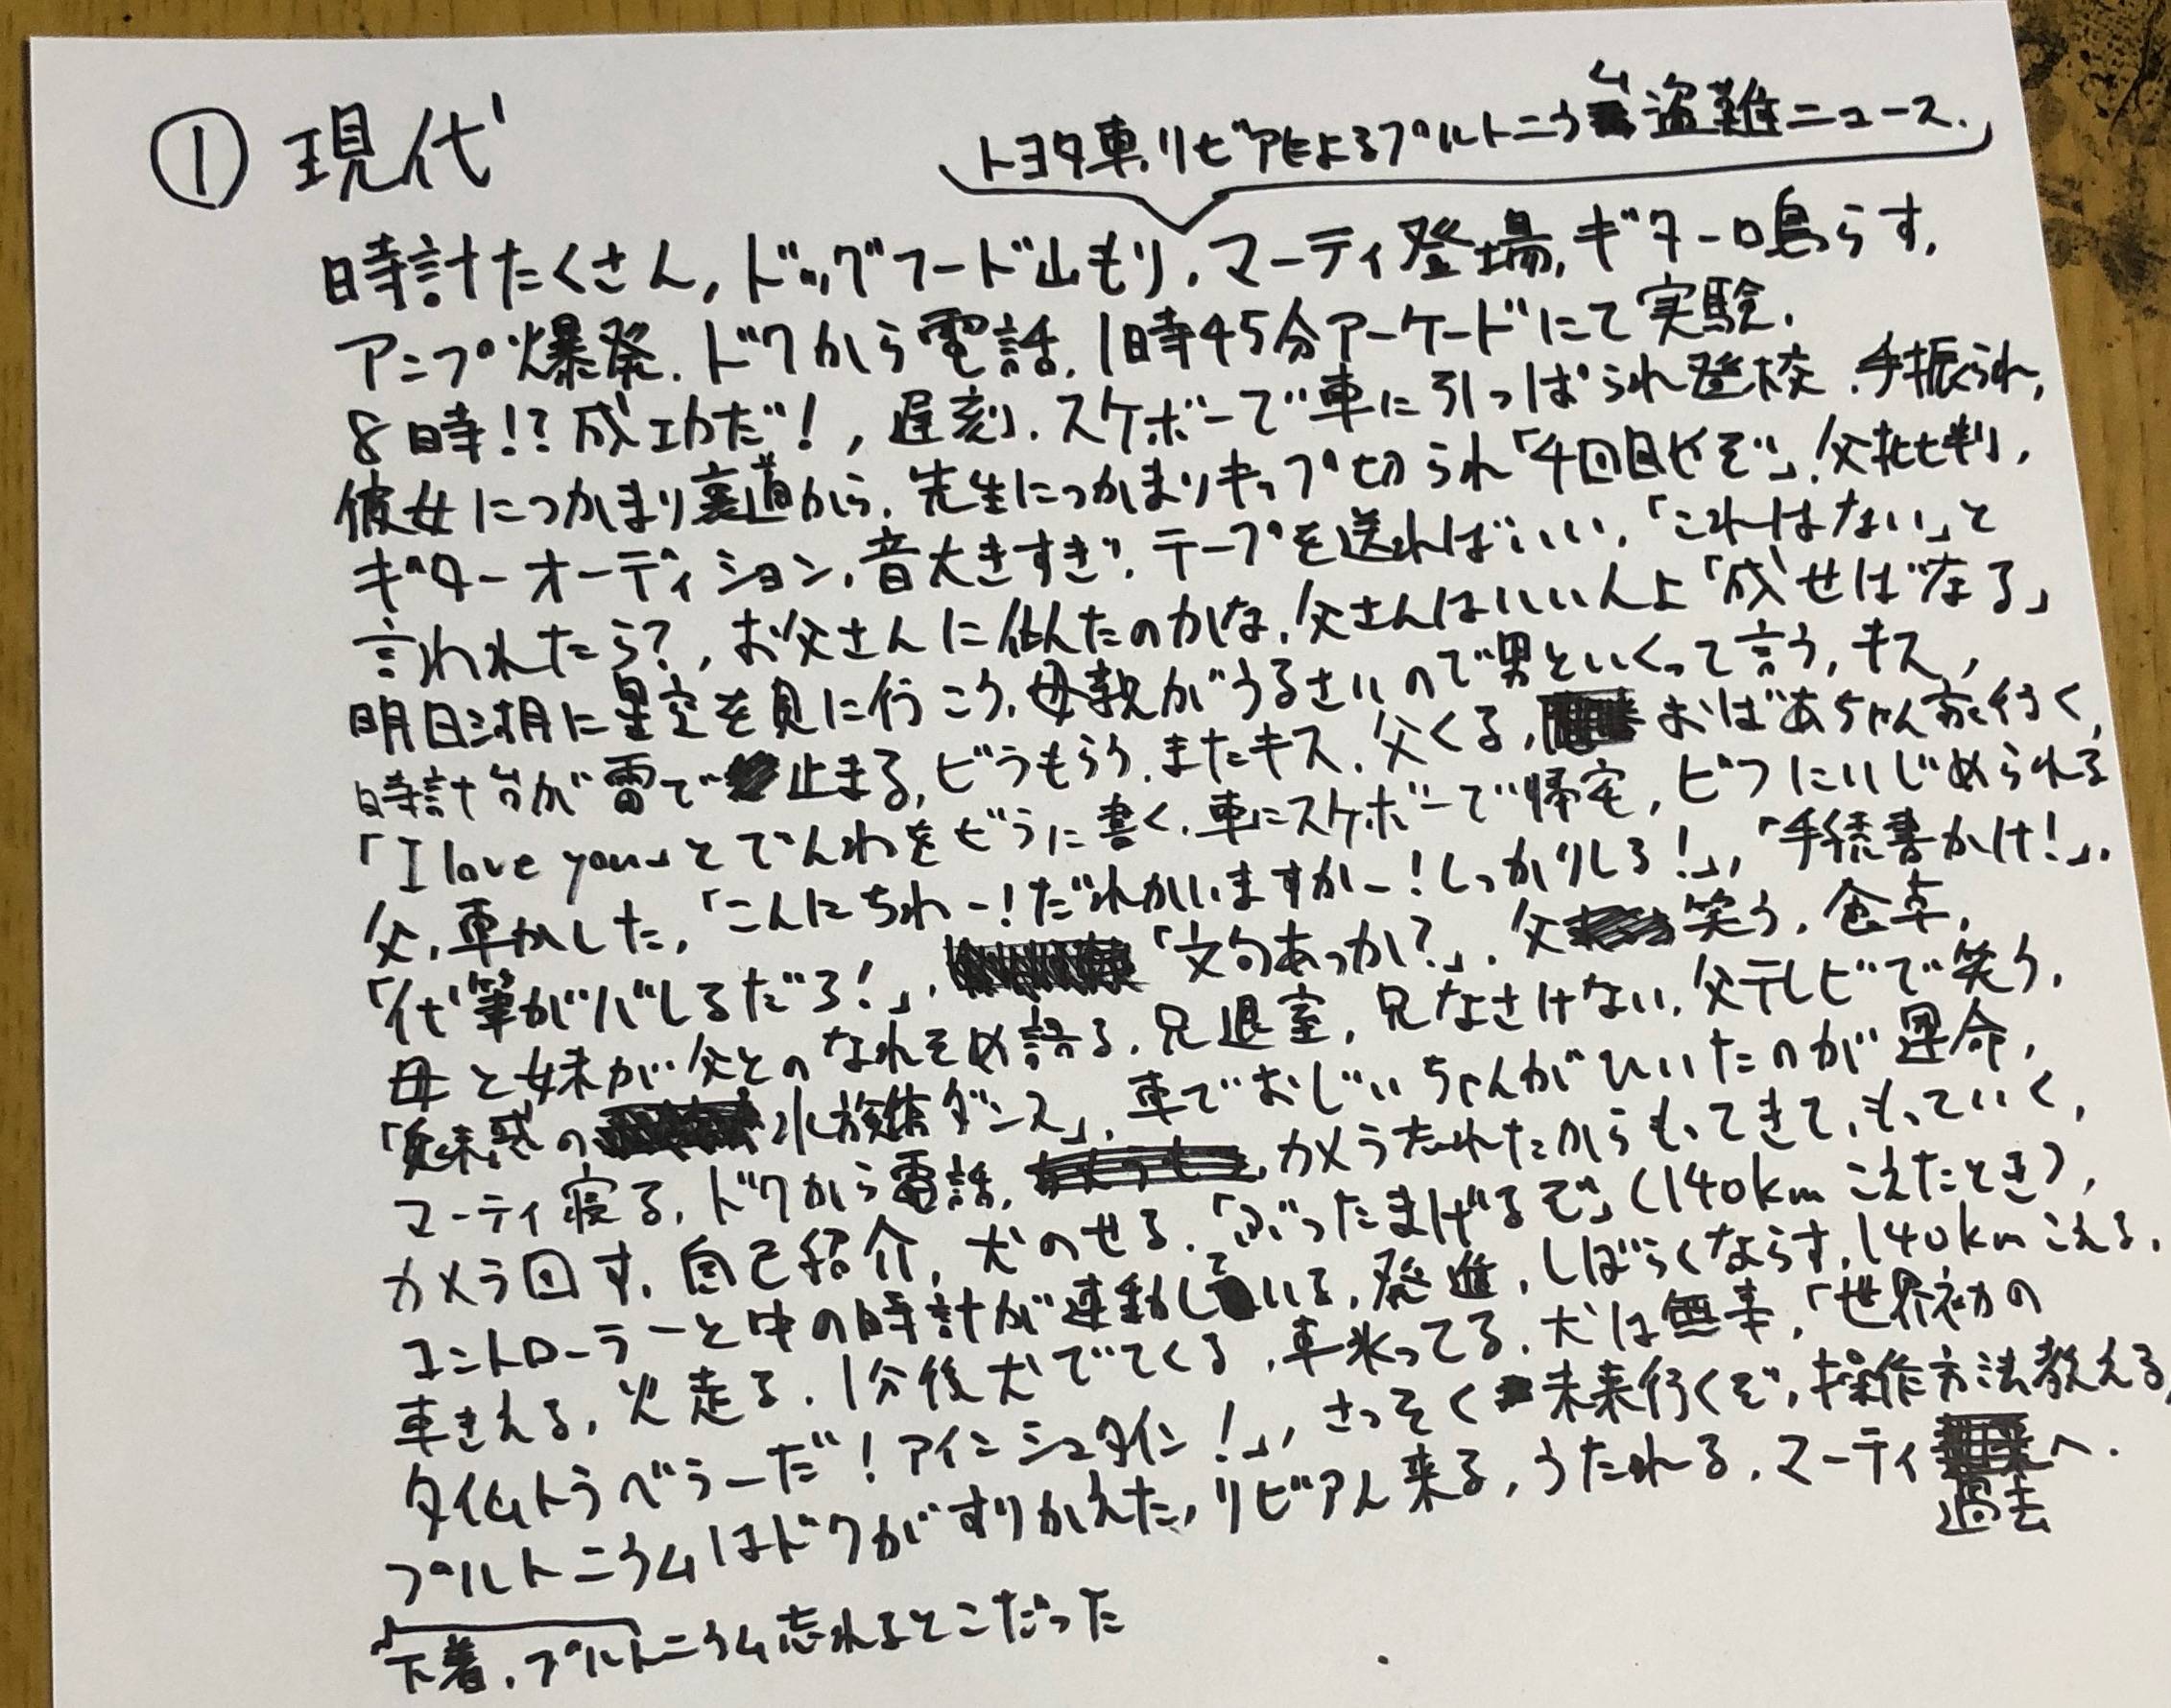 ① 現代
トヨタ車、リビアによるプルトニウム盗難ニュース.
時計たくさん, ドッグフード山もり, マーティ登場, ギター鳴らす,
アンプ爆発. ドクから電話. 1時45分アーケードにて実験.
8時!? 成功だ!, 遅刻. スケボーで車に引っぱられ登校. 手振られ,
彼女につかまり裏道から. 先生につかまりキップ切られ「4回目やぞ」. 父批判,
ギターオーディション, 音大きすぎ. テープを送ればいい. 「これはない」と
言われたら?, お父さんに似たのかな. 父さんはいい人よ「成せばなる」
明日湖に星空を見に行こう, 母親がうるさいので男といくって言う, キス,
時計台が雷で止まる, ビラもらう. またキス. 父くる, おばあちゃん家行く,
「I love you」とでんわをビラに書く. 車にスケボーで帰宅, ビフにいじめられる
父, 車かした, 「こんにちわー! だれかいますかー! しっかりしろ!」, 「手続書かけ!」.
「代筆がバレるだろ!」, 「文句あっか?」. 父笑う. 食卓,
母と妹が父とのなれそめ語る, 兄退室, 兄なさけない, 父テレビで笑う,
「魅惑の水族館ダンス」, 車でおじいちゃんがひいたのが運命,
マーティ寝る, ドクから電話, カメラ忘れたからもってきて, もっていく,
カメラ回す, 自己紹介, 犬のせる. 「ぶったまげるぞ」(140kmこえたとき),
コントローラーと中の時計が連動している, 発進, しばらくならす, 140kmこえる.
車きえる, 火走る. 1分後犬でてくる, 車氷ってる, 犬は無事, 「世界初の
タイムトラベラーだ! アインシュタイン!」, さっそく未来行くぞ, 操作方法教える,
プルトニウムはドクがすりかえた, リビア人来る, うたれる, マーティ過去へ.
下着, プルトニウム忘れるとこだった